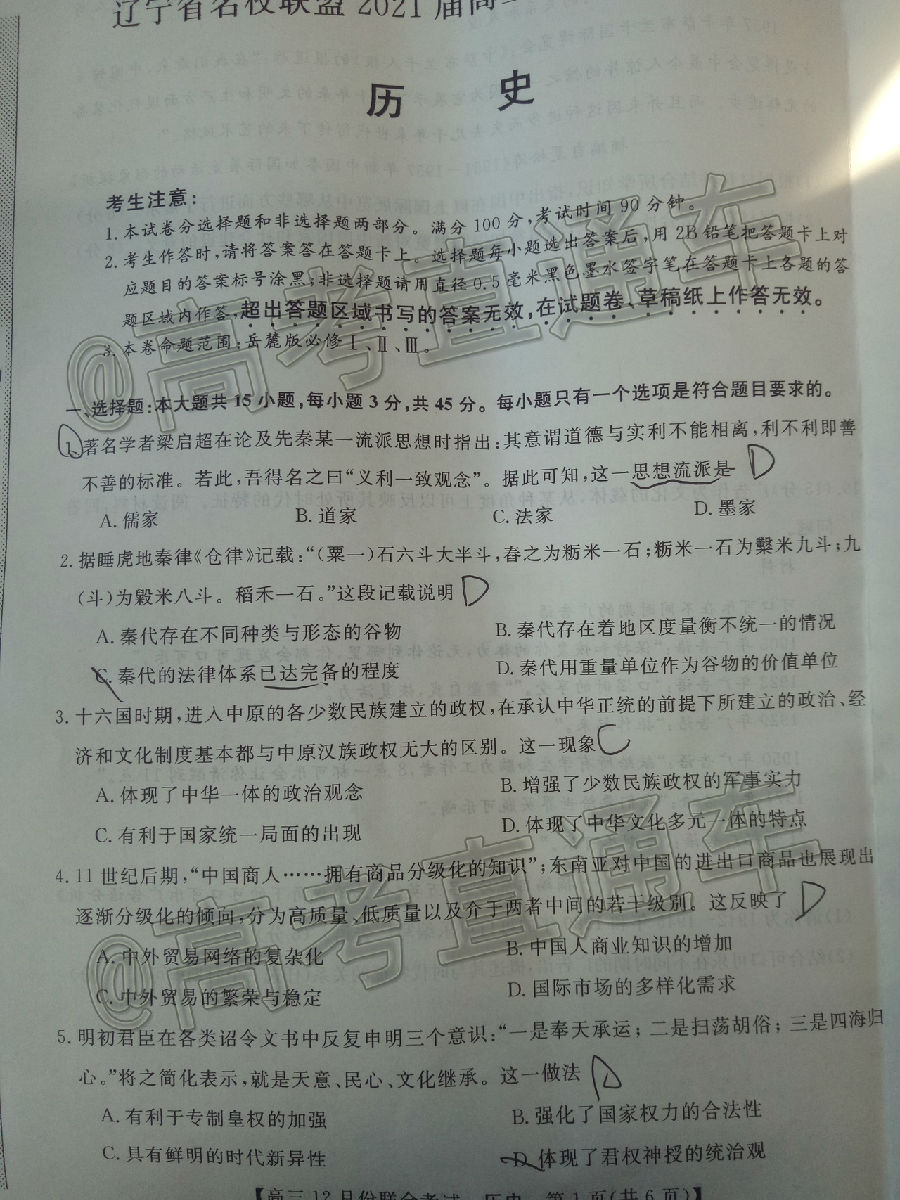 辽宁省名校联盟 2021 届高
历 史
考生注意:
1. 本试卷分选择题和非选择题两部分。满分 100 分,考试时间 90 分钟。
2. 考生作答时,请将答案答在答题卡上。选择题每小题选出答案后,用 2B 铅笔把答题卡上对
应题目的答案标号涂黑;非选择题请用直径 0.5 毫米黑色墨水签字笔在答题卡上各题的答
题区域内作答,超出答题区域书写的答案无效,在试题卷、草稿纸上作答无效。
3. 本卷命题范围:岳麓版必修Ⅰ、Ⅱ、Ⅲ。
@高考直通车
一、选择题:本大题共 15 小题,每小题 3 分,共 45 分。每小题只有一个选项是符合题目要求的。
1. 著名学者梁启超在论及先秦某一流派思想时指出:其意谓道德与实利不能相离,利不利即善
不善的标准。若此,吾得名之曰“义利一致观念”。据此可知,这一思想流派是 D
A. 儒家 B. 道家 C. 法家 D. 墨家
2. 据睡虎地秦律《仓律》记载:“(粟一)石六斗大半斗,舂之为粝米一石;粝米一石为糳米九斗;九
(斗)为毇米八斗。稻禾一石。”这段记载说明 D
A. 秦代存在不同种类与形态的谷物 B. 秦代存在着地区度量衡不统一的情况
C. 秦代的法律体系已达完备的程度 D. 秦代用重量单位作为谷物的价值单位
3. 十六国时期,进入中原的各少数民族建立的政权,在承认中华正统的前提下所建立的政治、经
济和文化制度基本都与中原汉族政权无大的区别。这一现象 C
A. 体现了中华一体的政治观念 B. 增强了少数民族政权的军事实力
C. 有利于国家统一局面的出现 D. 体现了中华文化多元一体的特点
4. 11 世纪后期,“中国商人……拥有商品分级化的知识”;东南亚对中国的进出口商品也展现出
逐渐分级化的倾向,分为高质量、低质量以及介于两者中间的若干级别。这反映了 D
A. 中外贸易网络的复杂化 B. 中国人商业知识的增加
C. 中外贸易的繁荣与稳定 D. 国际市场的多样化需求
@高考直通车
5. 明初君臣在各类诏令文书中反复申明三个意识:“一是奉天承运;二是扫荡胡俗;三是四海归
心。”将之简化表示,就是天意、民心、文化继承。这一做法 D
A. 有利于专制皇权的加强 B. 强化了国家权力的合法性
C. 具有鲜明的时代新异性 D. 体现了君权神授的统治观
【高三 12 月份联合考试 历史 第 1 页(共 6 页)】